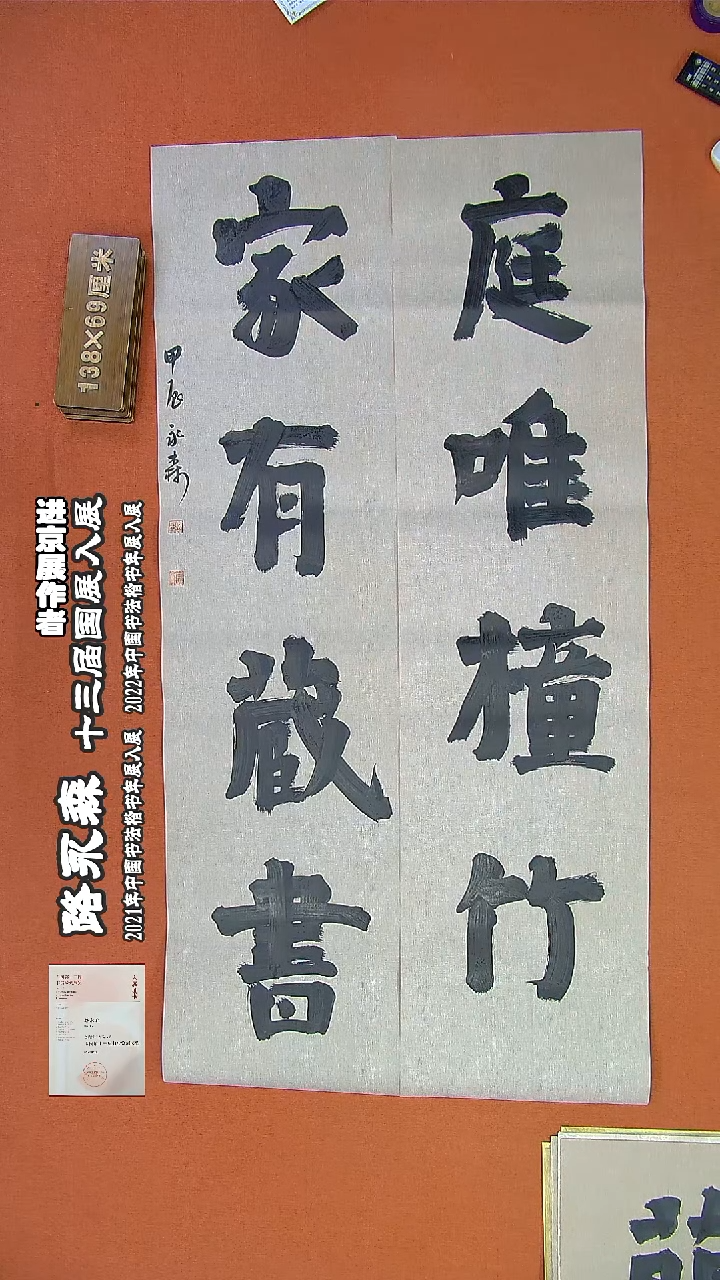 庭唯橦竹
家有蔵書
甲辰永森
138×69厘米
路永森 十三届国展入展
2021年中国书法楷书年展入展 2022年中国书法楷书年展入展